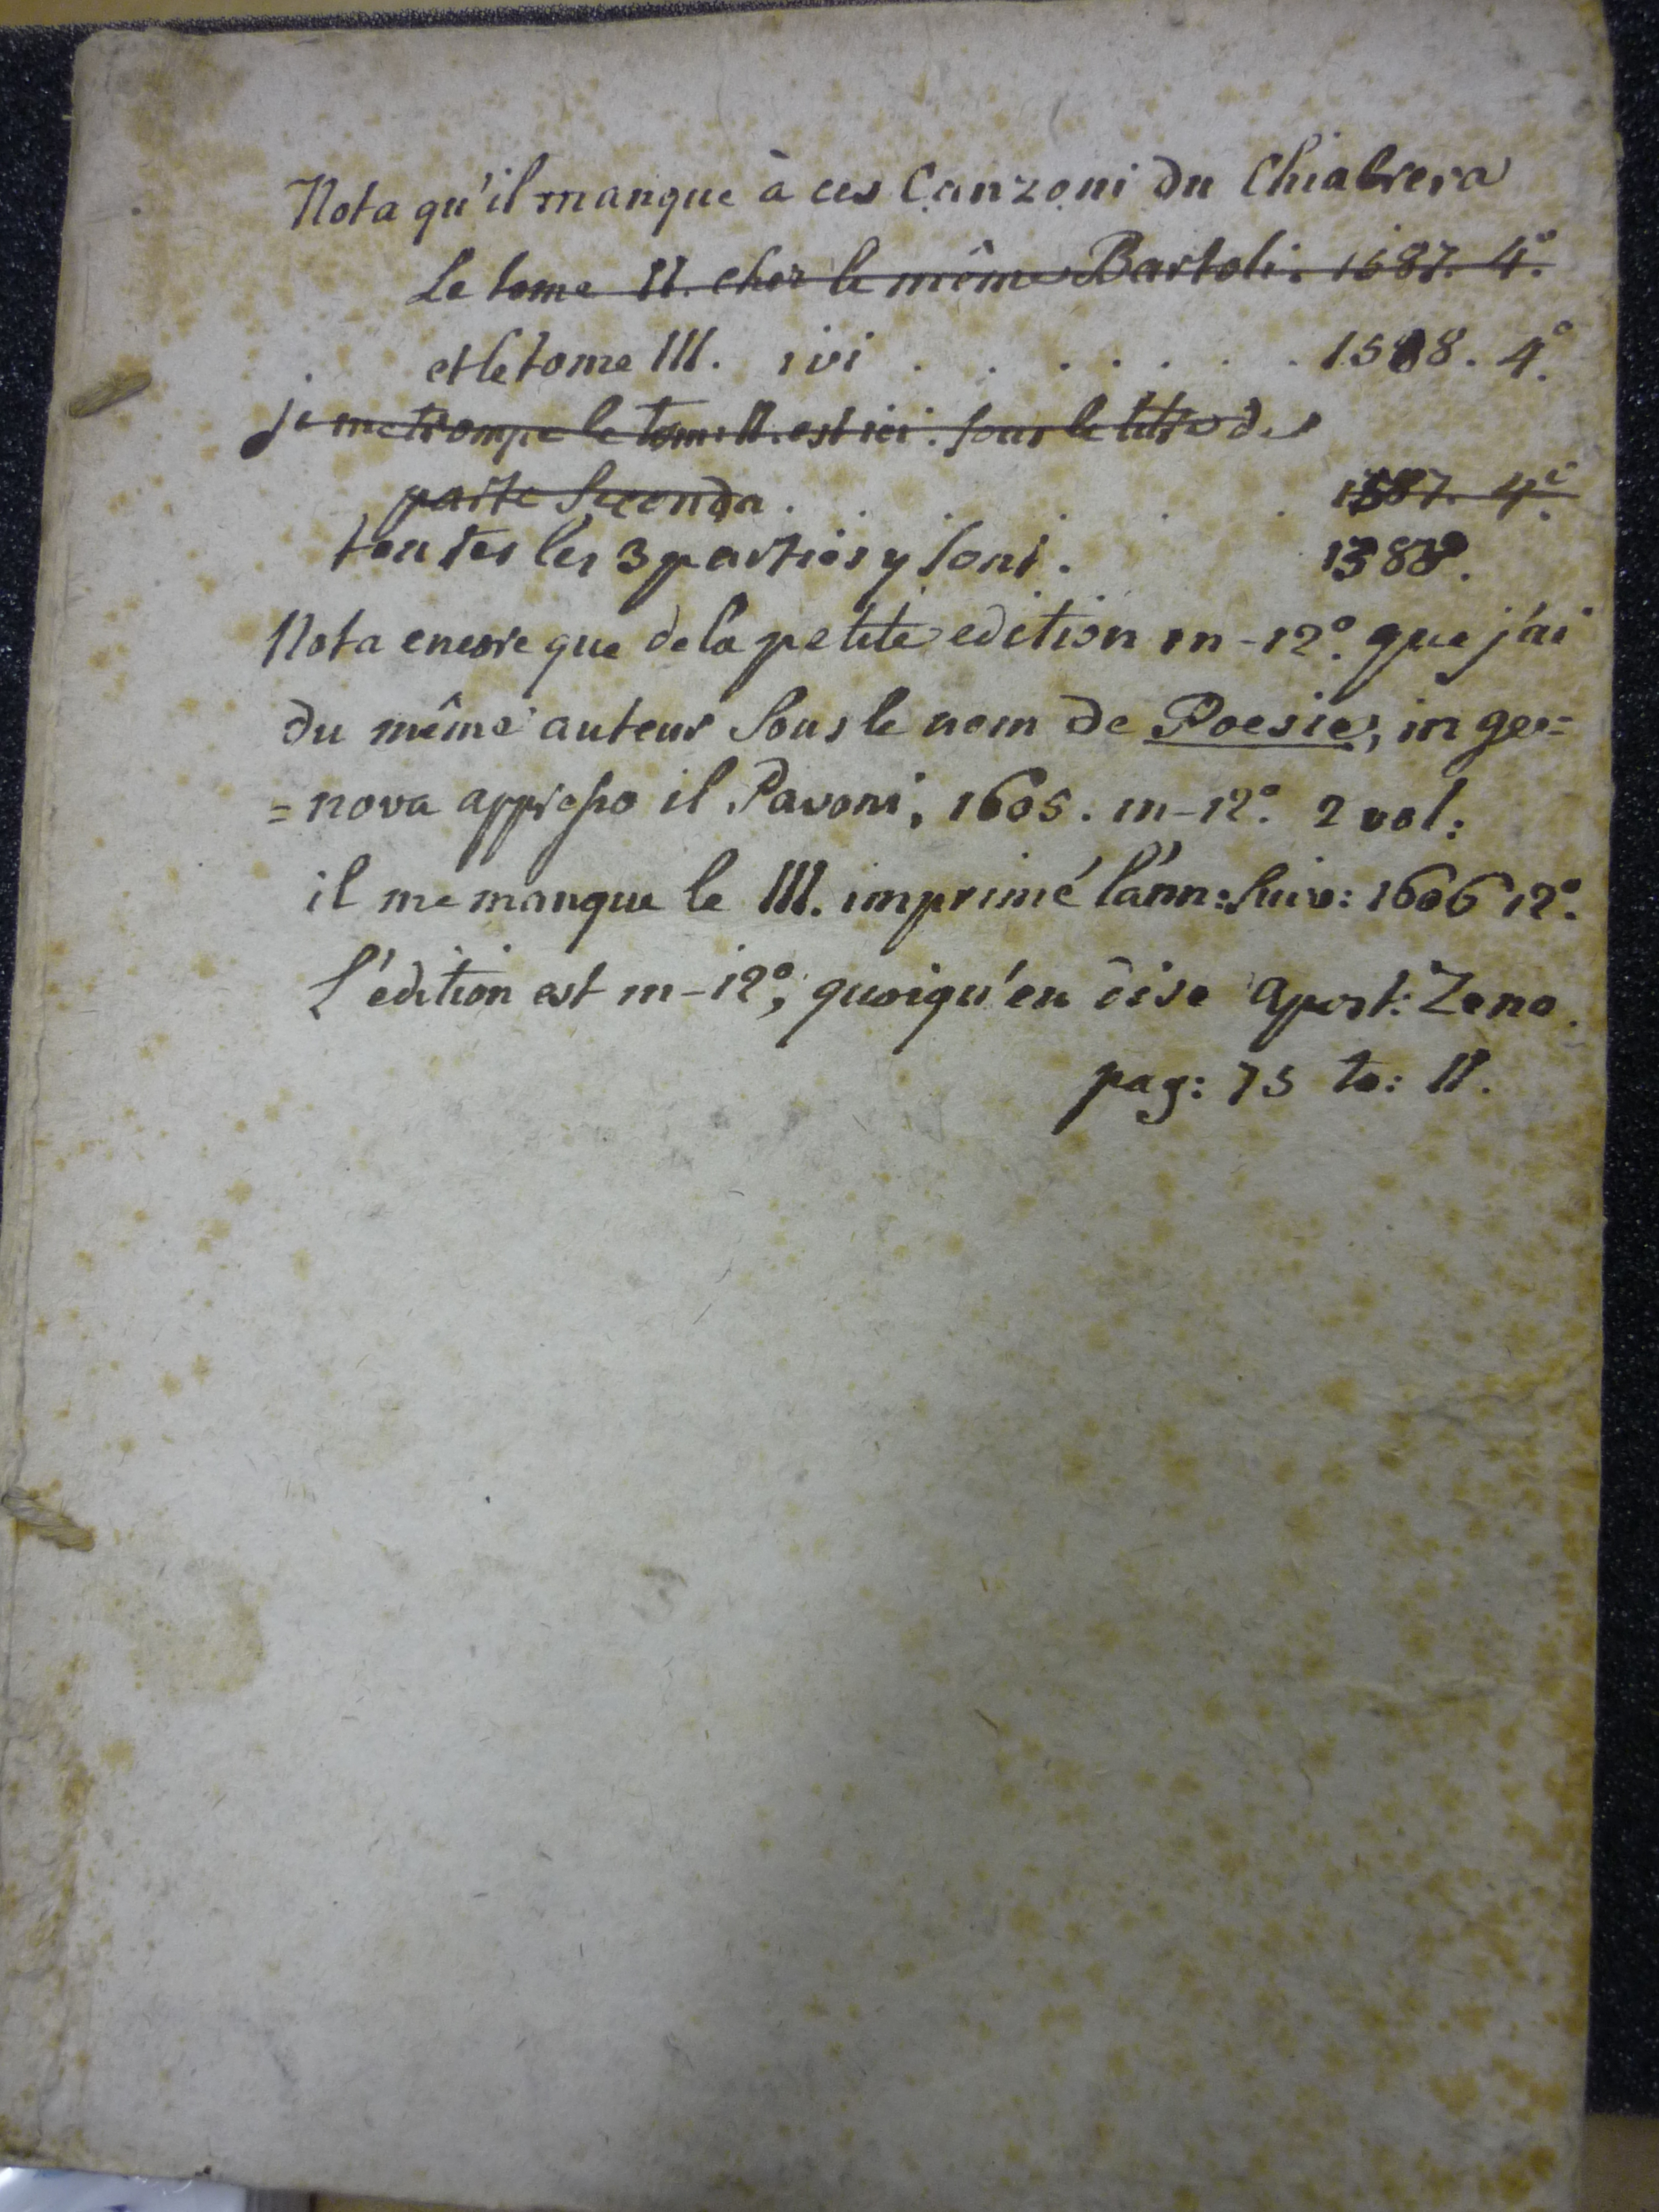 Nota qu'il manque à ces Canzoni du Chiabrera
Le tome II. chez le même Bartoli. 1587. 4°.
et le tome III. ivi . . . . . . . 1588. 4°.
je me trompe le tome II. est ici. sous le titre de
parte Seconda . . . . . 1587. 4°.
toutes les 3 parties y sont. 1588.
Nota encore que de la petite edition in-12°. que j'ai
du même auteur sous le nom de Poesie, in ge=
=nova appresso il Pavoni, 1605. in-12°. 2 vol:
il me manque le III. imprimé l'ann: suiv: 1606 12°.
L'edition est in-12°, quoiqu'en dise Apost: Zeno.
pag: 75 to: II.